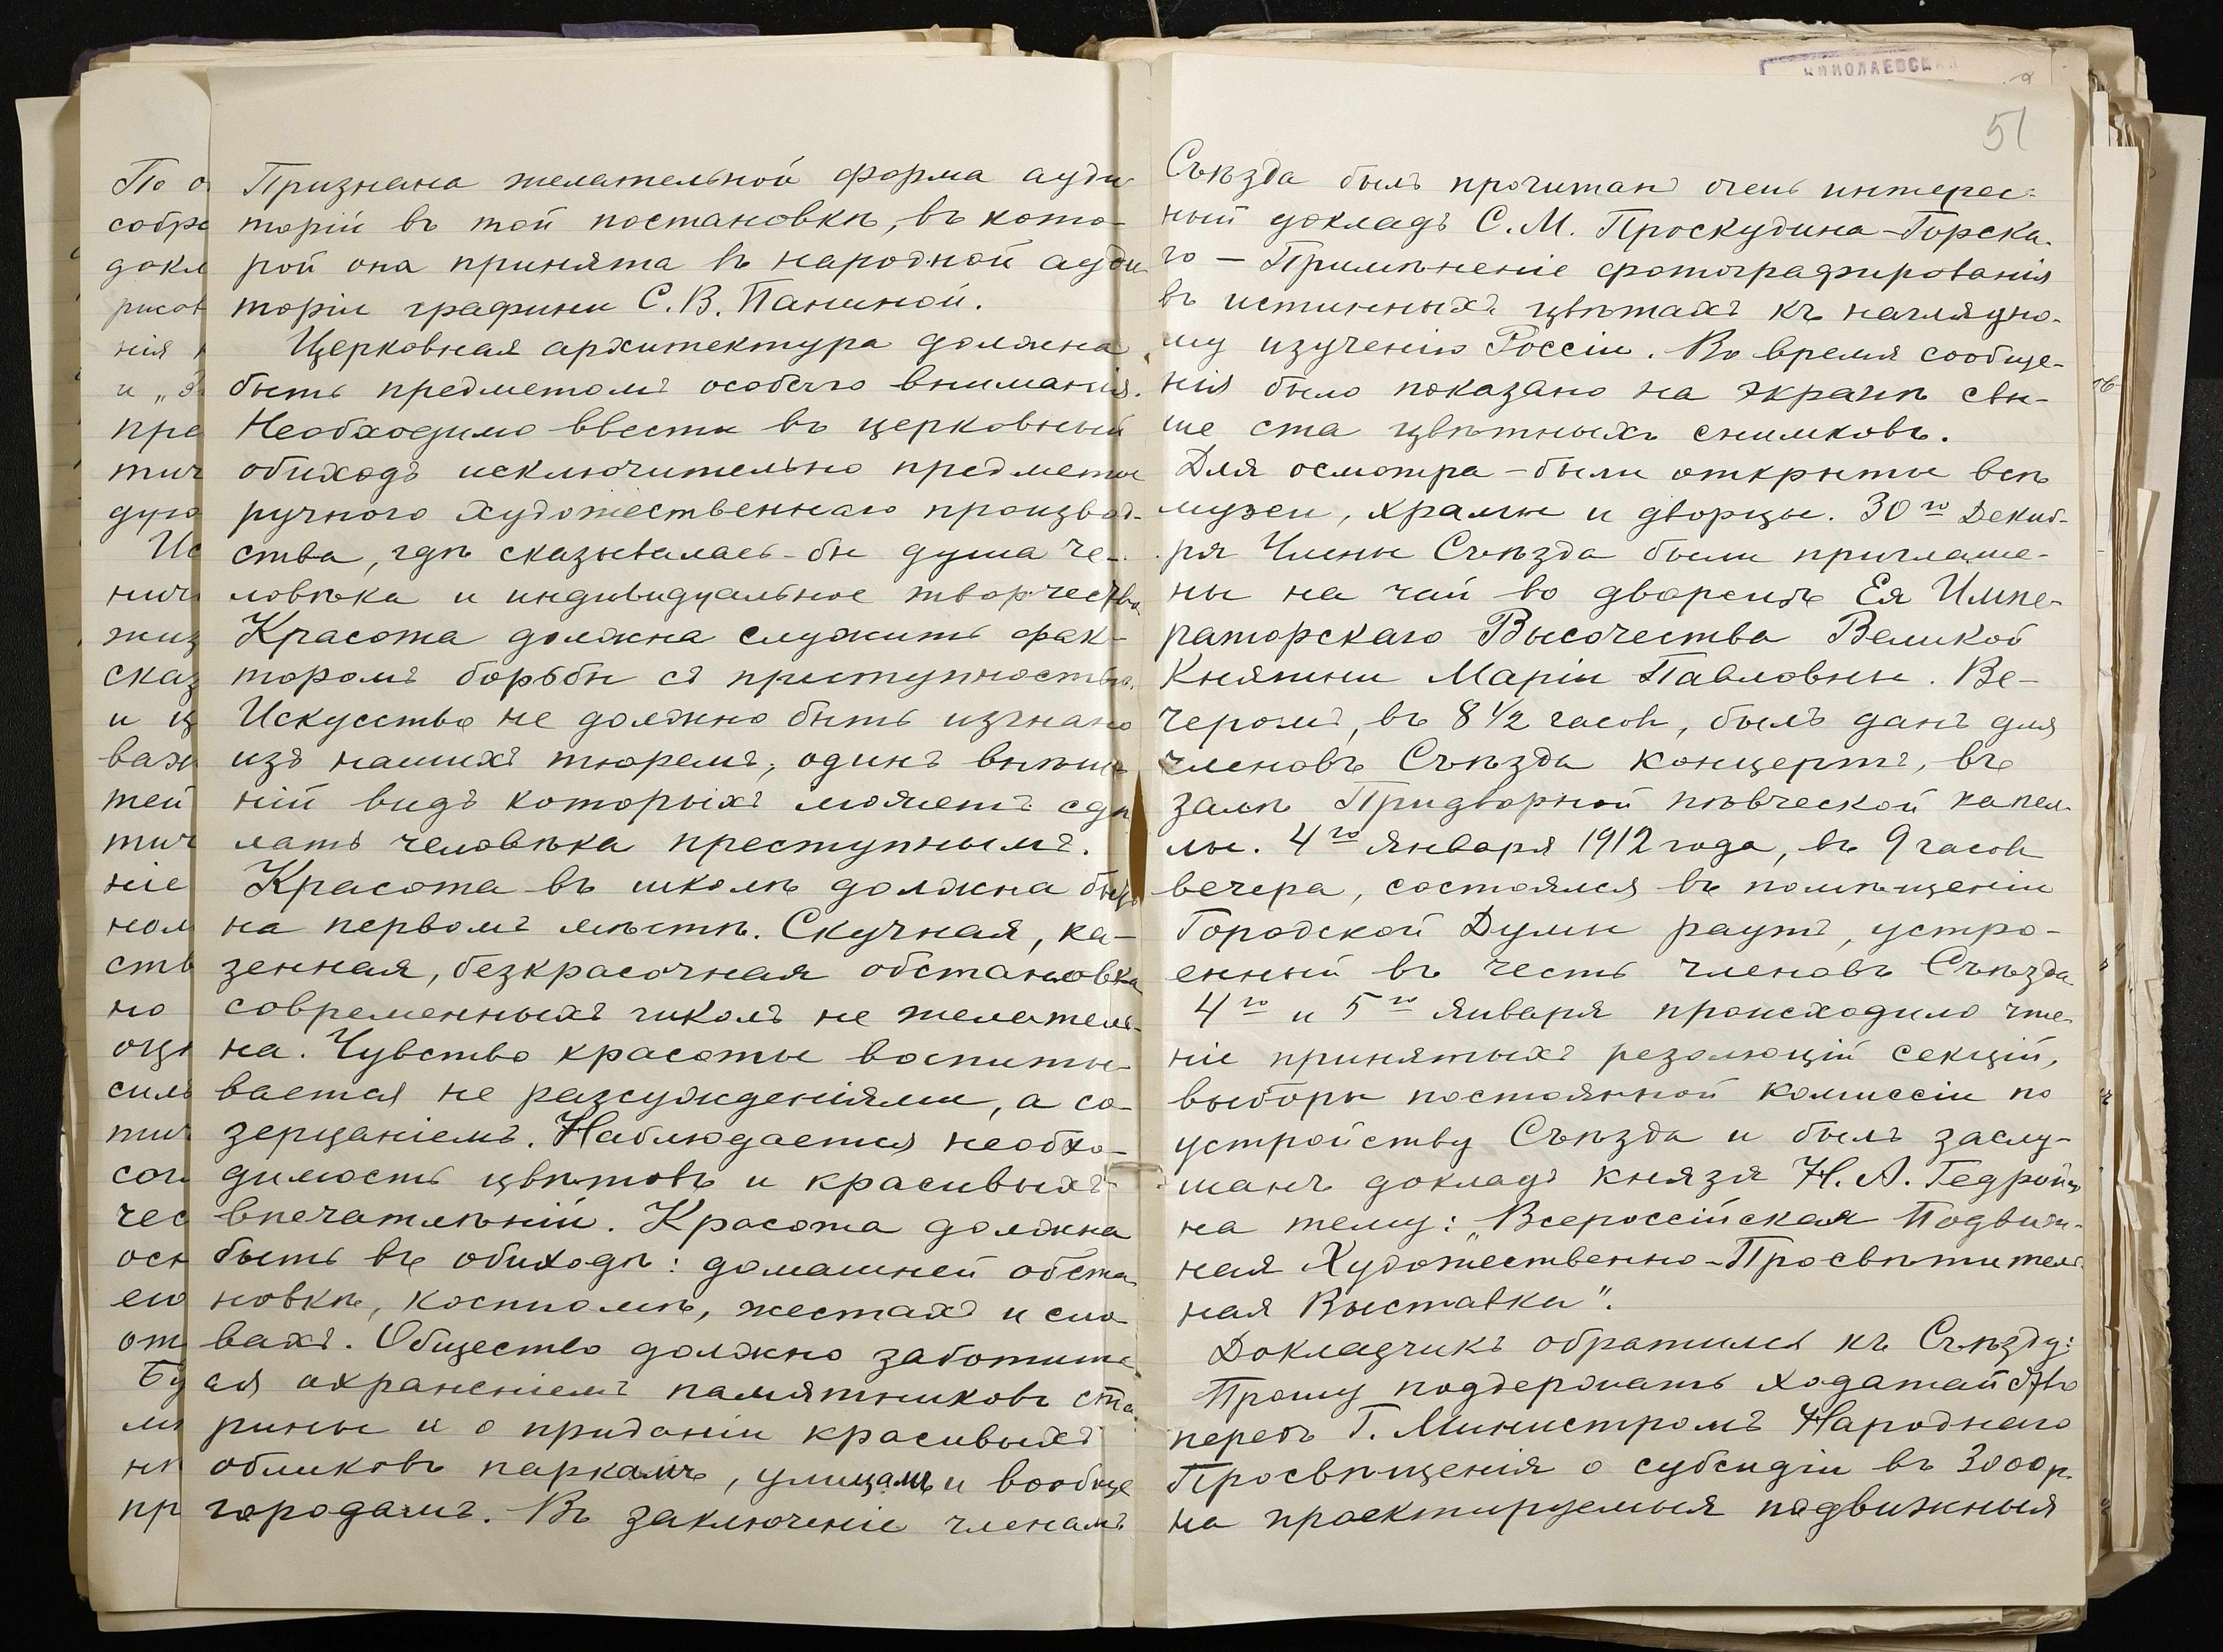 Признана желательной форма ауди-
торій въ той постановкѣ, въ кото-
рой она принята въ народной ауди-
торіи графини С. В. Паниной.
Церковная архитектура должна
быть предметомъ особаго вниманія.
Необходимо ввести въ церковный
обиходъ исключительно предметы
ручного художественнаго производ-
ства, гдѣ сказывалась-бы душа че-
ловѣка и индивидуальное творчество.
Красота должна служить фак-
торомъ борьбы съ преступностью.
Искусство не должно быть изгнано
изъ нашихъ тюремъ, одинъ внѣш-
ній видъ которыхъ можетъ сдѣ
лать человѣка преступнымъ.
Красота въ школѣ должна быть
на первомъ мѣстѣ. Скучная, ка-
зенная, безкрасочная обстановка
современныхъ школъ не желатель-
на. Чувство красоты воспиты-
вается не разсужденіями, а со-
зерцаніемъ. Наблюдается необхо-
димость цвѣтовъ и красивыхъ
впечатлѣній. Красота должна
быть въ обиходѣ: домашней обста-
новкѣ, костюмѣ, жестахъ и сло
вахъ. Общество должно заботить
ся охраненіемъ памятниковъ ста
рины и о приданіи красивыхъ
обликовъ паркамъ, улицамъ и вообще
городамъ. Въ заключеніе членамъ
НИКОЛАЕВСКАЯ
51
Съѣзда былъ прочитанъ очень интерес-
ный докладъ С. М. Проскудина-Горска-
го — Примѣненіе фотографированія
въ истинныхъ цвѣтахъ къ наглядно-
му изученію Россіи. Во время сообще-
нія было показано на экранѣ свы-
ше ста цвѣтныхъ снимковъ.
Для осмотра - были открыты всѣ
музеи, храмы и дворцы. 30го Декаб-
ря Члены Съѣзда были приглаше-
ны на чай во дворецъ Ея Импе-
раторскаго Высочества Великой
Княгини Маріи Павловны. Ве-
черомъ, въ 8 1/2 часовъ, былъ данъ для
членовъ Съѣзда концертъ, въ
залѣ Придворной пѣвческой капел-
лы. 4го Января 1912 года, въ 9 часовъ
вечера, состоялся въ помѣщеніи
Городской Думы раутъ, устро-
енный въ честь членовъ Съѣзда
4го и 5го Января происходило чте-
ніе принятыхъ резолюцій секцій,
выборы постоянной комиссіи по
устройству Съѣзда и былъ заслу-
шанъ докладъ князя Н. А. Гедройцъ
на тему: „Всероссійская Подвиж-
ная Художественно-Просвѣтитель-
ная Выставка".
Докладчикъ обратился къ Съѣзду:
Прошу поддержать ходатайство
передъ Г. Министромъ Народнаго
Просвѣщенія о субсидіи въ 3000 р.
на проектируемыя подвижныя